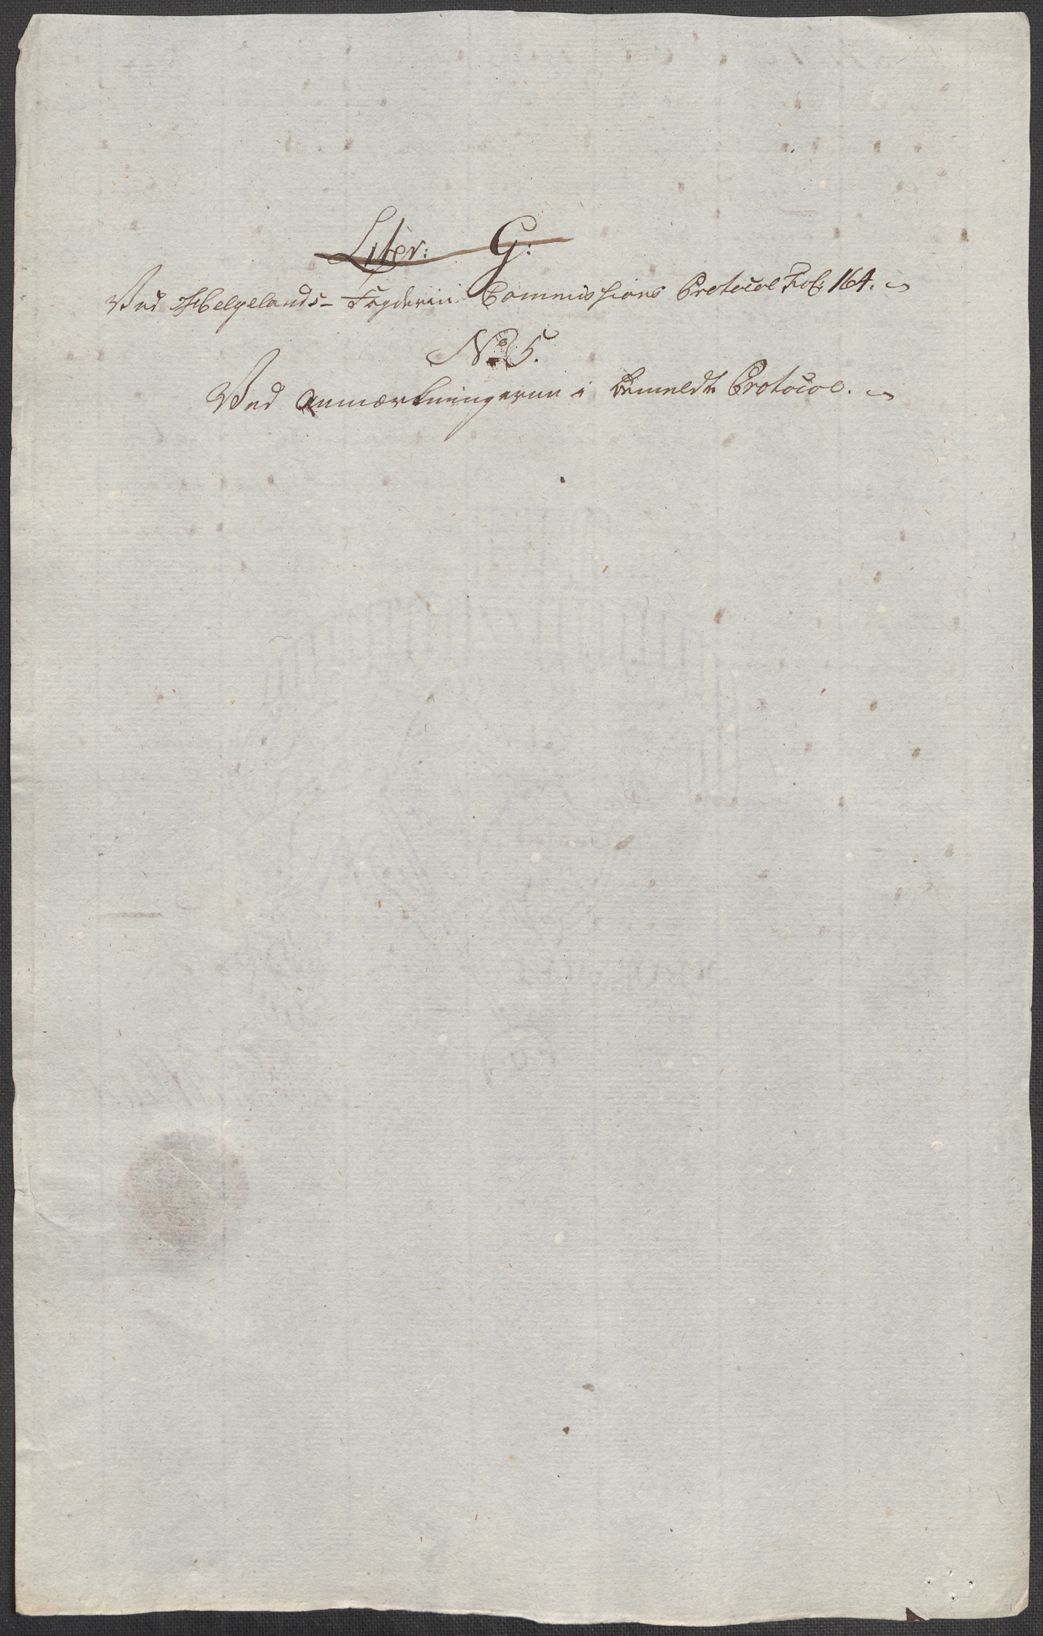 Liter: G:
Ved Helgelands- Fogderie Commissions Protocol Fol: 164.
No 5.
Ved Anmærkningerne i bemeldte Protocol.